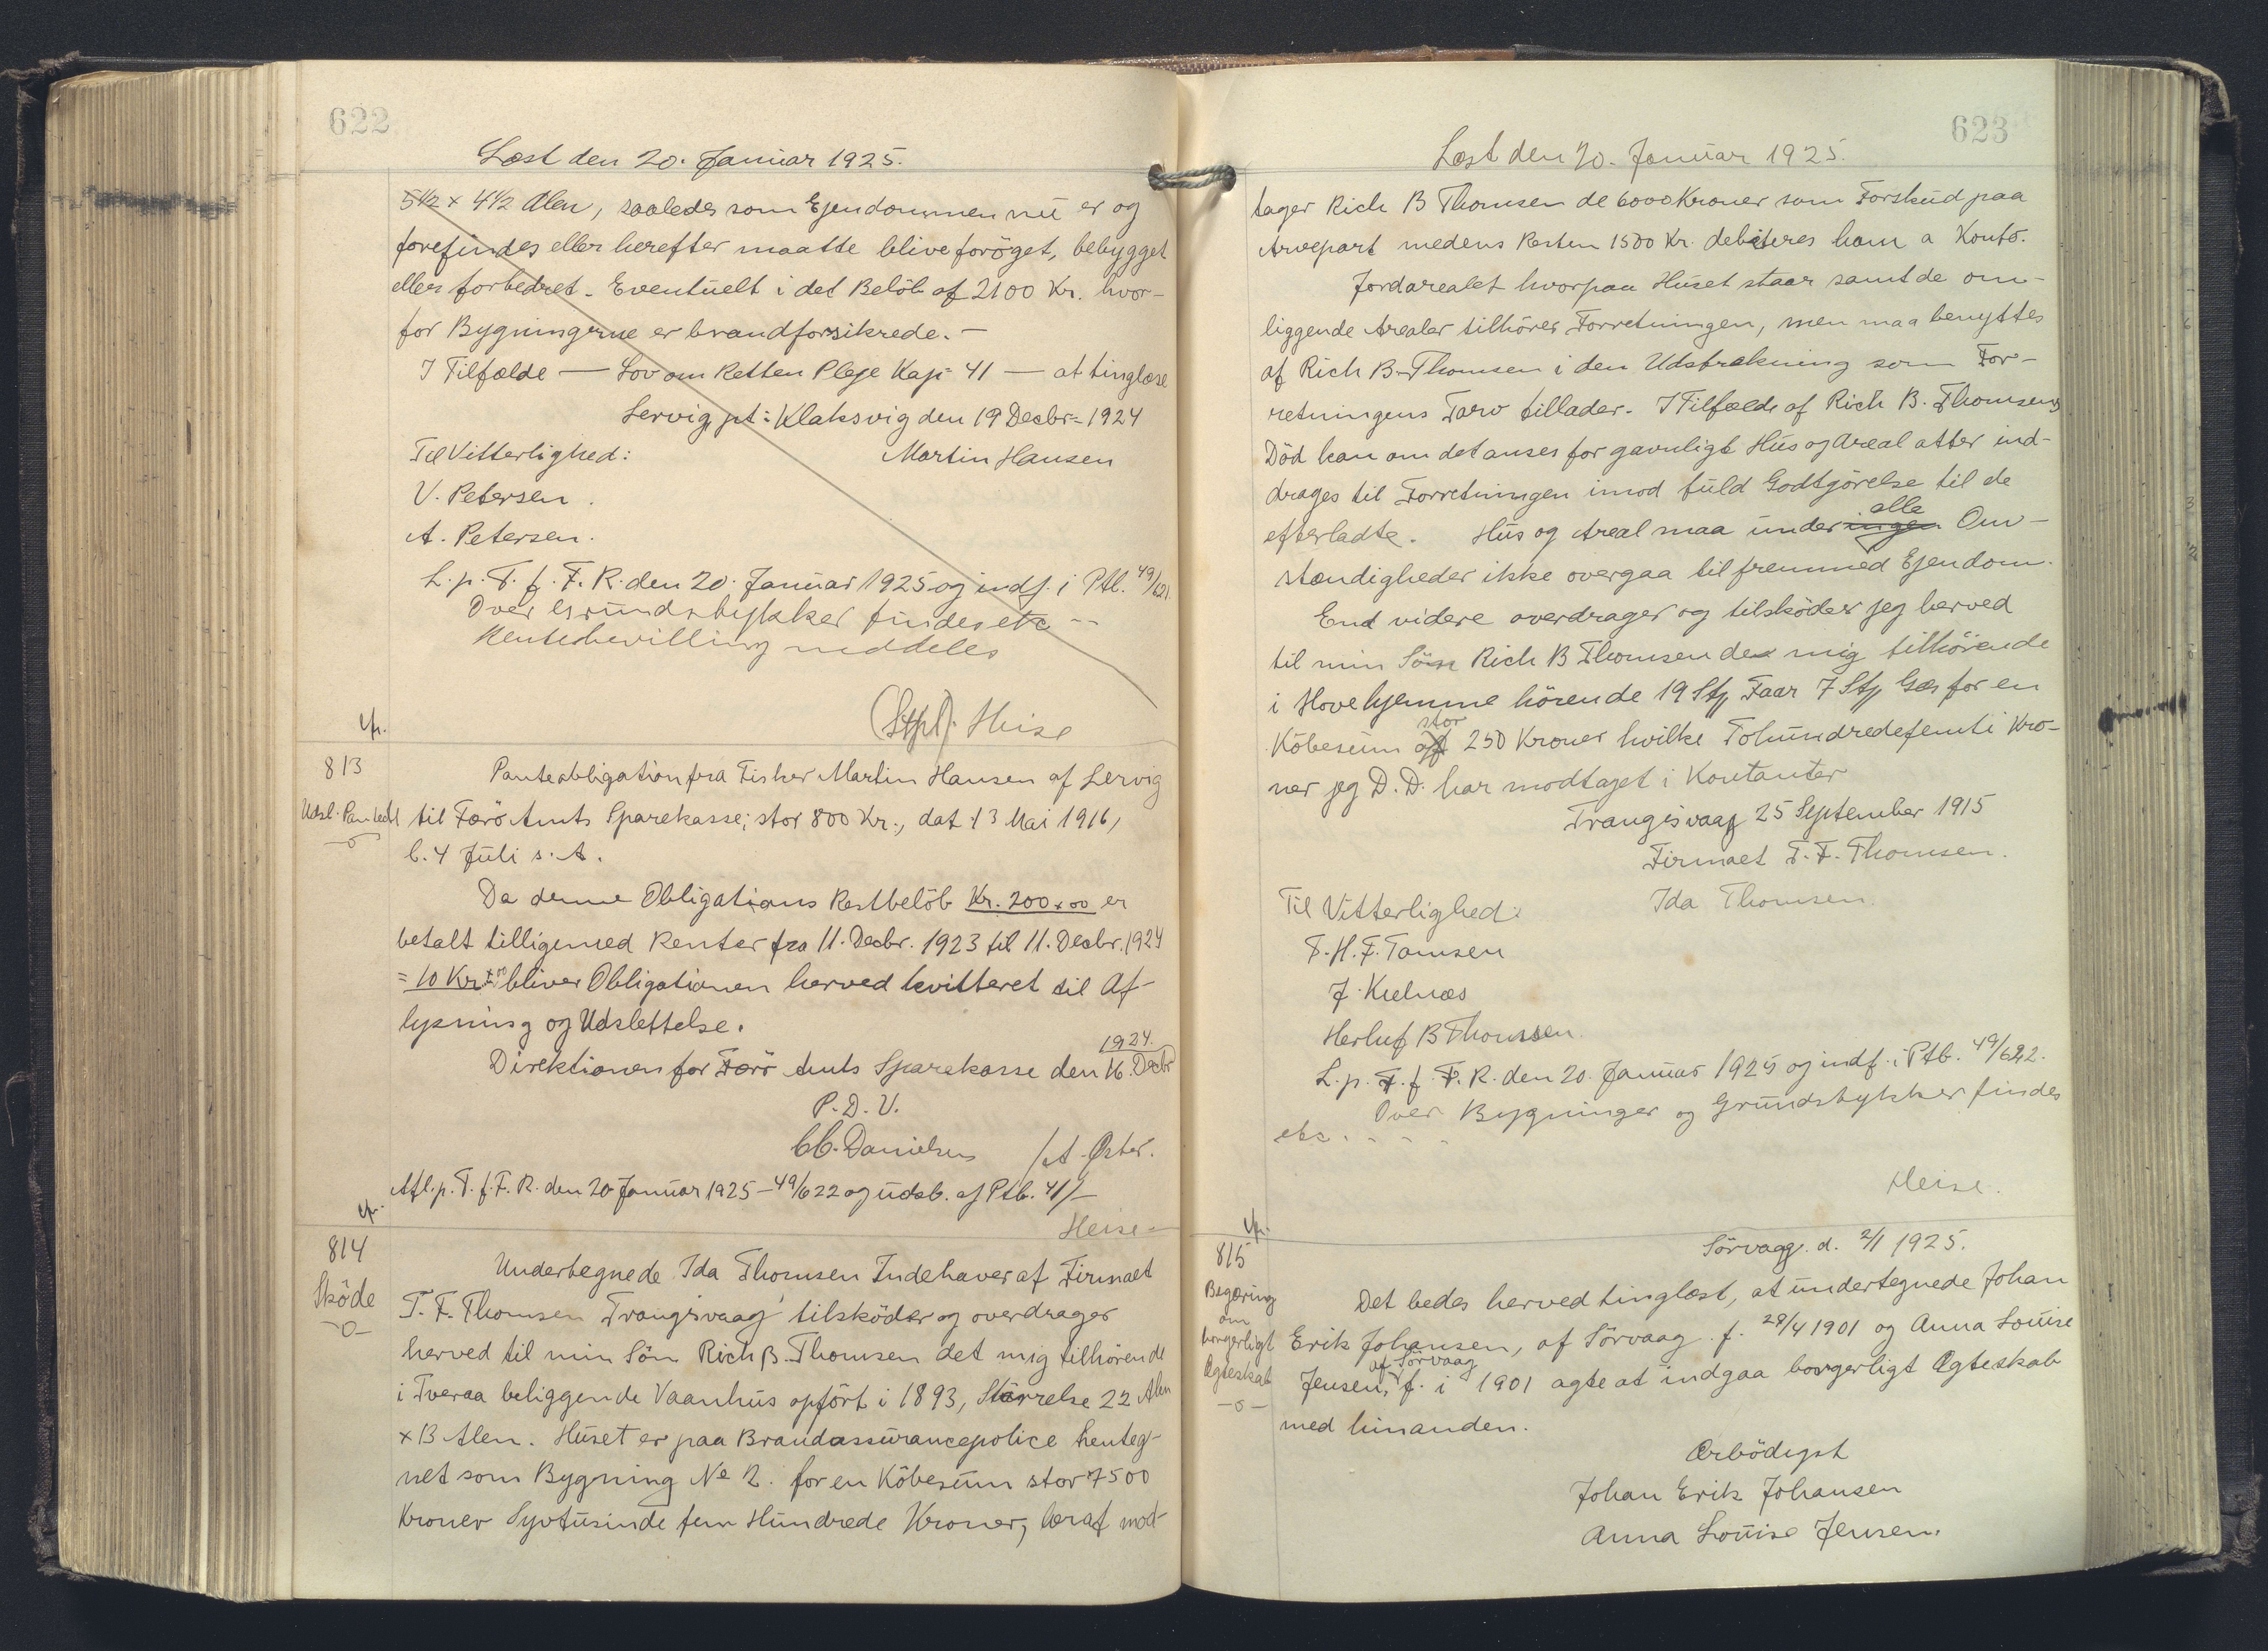 622
Læst den 20. Januar 1925.
5½ x 4½ Alen, saaledes som Ejendommen nu er og
forefindes eller herefter maatte blive foröget, bebygget
eller forbedret. Eventuelt i det Belöb af 2100 Kr. hvor-
for Bygningerne er brandforsikrede. -
I Tilfælde — Lov om Rettens Pleje Kap. 41 — at tinglæse
Lervig, pt: Klaksvig den 19 Decbr. 1924
Til Vitterlighed:
Martin Hansen
V. Petersen.
A. Petersen.
L. p. T. f. F. R. den 20. Januar 1925 og indf. i Ptb. 49/621.
Over Grundstykker findes etc --
Rentebevilling meddeles
(Stpl). Heise
cfr.
813
Udsl. Pantebl
-o-
Panteobligation fra Fisker Martin Hansen af Lervig
til Færö Amts Sparekasse; stor 800 Kr., dat. 13 Mai 1916,
l. 4 Juli s. A.
Da denne Obligations Restbelöb Kr. 200 x 00 er
betalt tilligemed Renter fra 11. Decbr. 1923 til 11. Decbr. 1924
= 10 Kr x 00 bliver Obligationen herved kvitteret til Af-
lysning og Udslettelse.
Direktionen for Færö Amts Sparekasse den 16. Decbr 1924.
P. D. V.
C. C. Danielsen /A. Öster.
Afl. p. T. f. F. R. den 20 Januar 1925 - 49/622 og udsl. af Ptb. 41/-
Heise -
cfr.
814
Sköde
-o-
Undertegnede Ida Thomsen Indehaver af Firmaet
T. F. Thomsen Trangisvaag tilsköder og overdrager
herved til min Sön Rich B. Thomsen det mig tilhörende
i Tveraa beliggende Vaanhus opfört i 1893, Störrelse 22 Alen
x 13 Alen. Huset er paa Brandassurancepolice henteg-
net som Bygning No 2. for en Köbesum stor 7500
Kroner Syvtusinde fem Hundrede Kroner, heraf mod-
623
Læst den 20. Januar 1925.
tager Rich B Thomsen de 6000 Kroner som Forskud paa
Arvepart medens Resten 1500 Kr. debiteres ham a Konto.
Jordarealet hvorpaa Huset staar samt de om-
liggende Arealer tilhörer Forretningen, men maa benyttes
af Rich B. Thomsen i den Udstrækning som For-
retningens Tarv tillader. I Tilfælde af Rich B. Thomsens
Död kan om det anses for gavnligt Hus og Areal atter ind-
drages til Forretningen imod fuld Godtgörelse til de
efterladte. Hus og Areal maa under ingen alle Om-
stændigheder ikke overgaa til fremmed Ejendom.
End videre overdrager og tilsköder jeg herved
til min Sön Rich B Thomsen de mig tilhörende
i Hove hjemme hörende 19 Stk Faar 7 Stk Gæs for en
Köbesum af stor 250 Kroner hvilke Tohundredefemti Kro-
ner jeg D. D. har modtaget i Kontanter
Trangisvaag 25 September 1915
Firmaet T. F. Thomsen.
Ida Thomsen.
Til Vitterlighed:
T. H. F. Tomsen
J. Kjelnæs
Herluf B Thomsen.
L. p. T. f. F. R. den 20. Januar 1925 og indf. i Ptb. 49/622.
Over Bygninger og Grundstykker findes
etc. - - -
Heise.
cfr.
815
Begæring
om
borgerligt
Ægteskab
-o-
Sörvaag. d. 2/1 1925.
Det bedes herved tinglæst, at undertegnede Johan
Erik Johansen, af Sörvaag. f. 29/4 1901 og Anna Louise
Jensen, af Sörvaag f. i 1901 agte at indgaa borgerligt Ægteskab
med hinanden.
Ærbödigst
Johan Erik Johansen
Anna Louise Jensen.